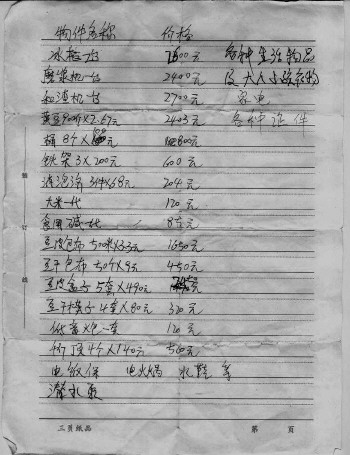 物件名称 价格
冰箱一台 1500元 各种生活物品
磨浆机一台 2400元 及大人小孩衣物
和渣机一台 2700元 家电
黄豆900斤×2.67元 2403元 各种证件
桶8个×100元 800元
铁架3×200元 600元
消泡涂3件×68元 204元
大米一代 120元
食用碱一代 85元
豆皮包布500米×3.3元 1650元
豆干包布50个×9元 450元
豆皮盒子5套×490元
豆干模子4套×80元 320元
低音炮一套 120元
轿顶4个×140元 560元
电饭保 电火锅 水鞋等
潜水泵
三员纸品 第 页